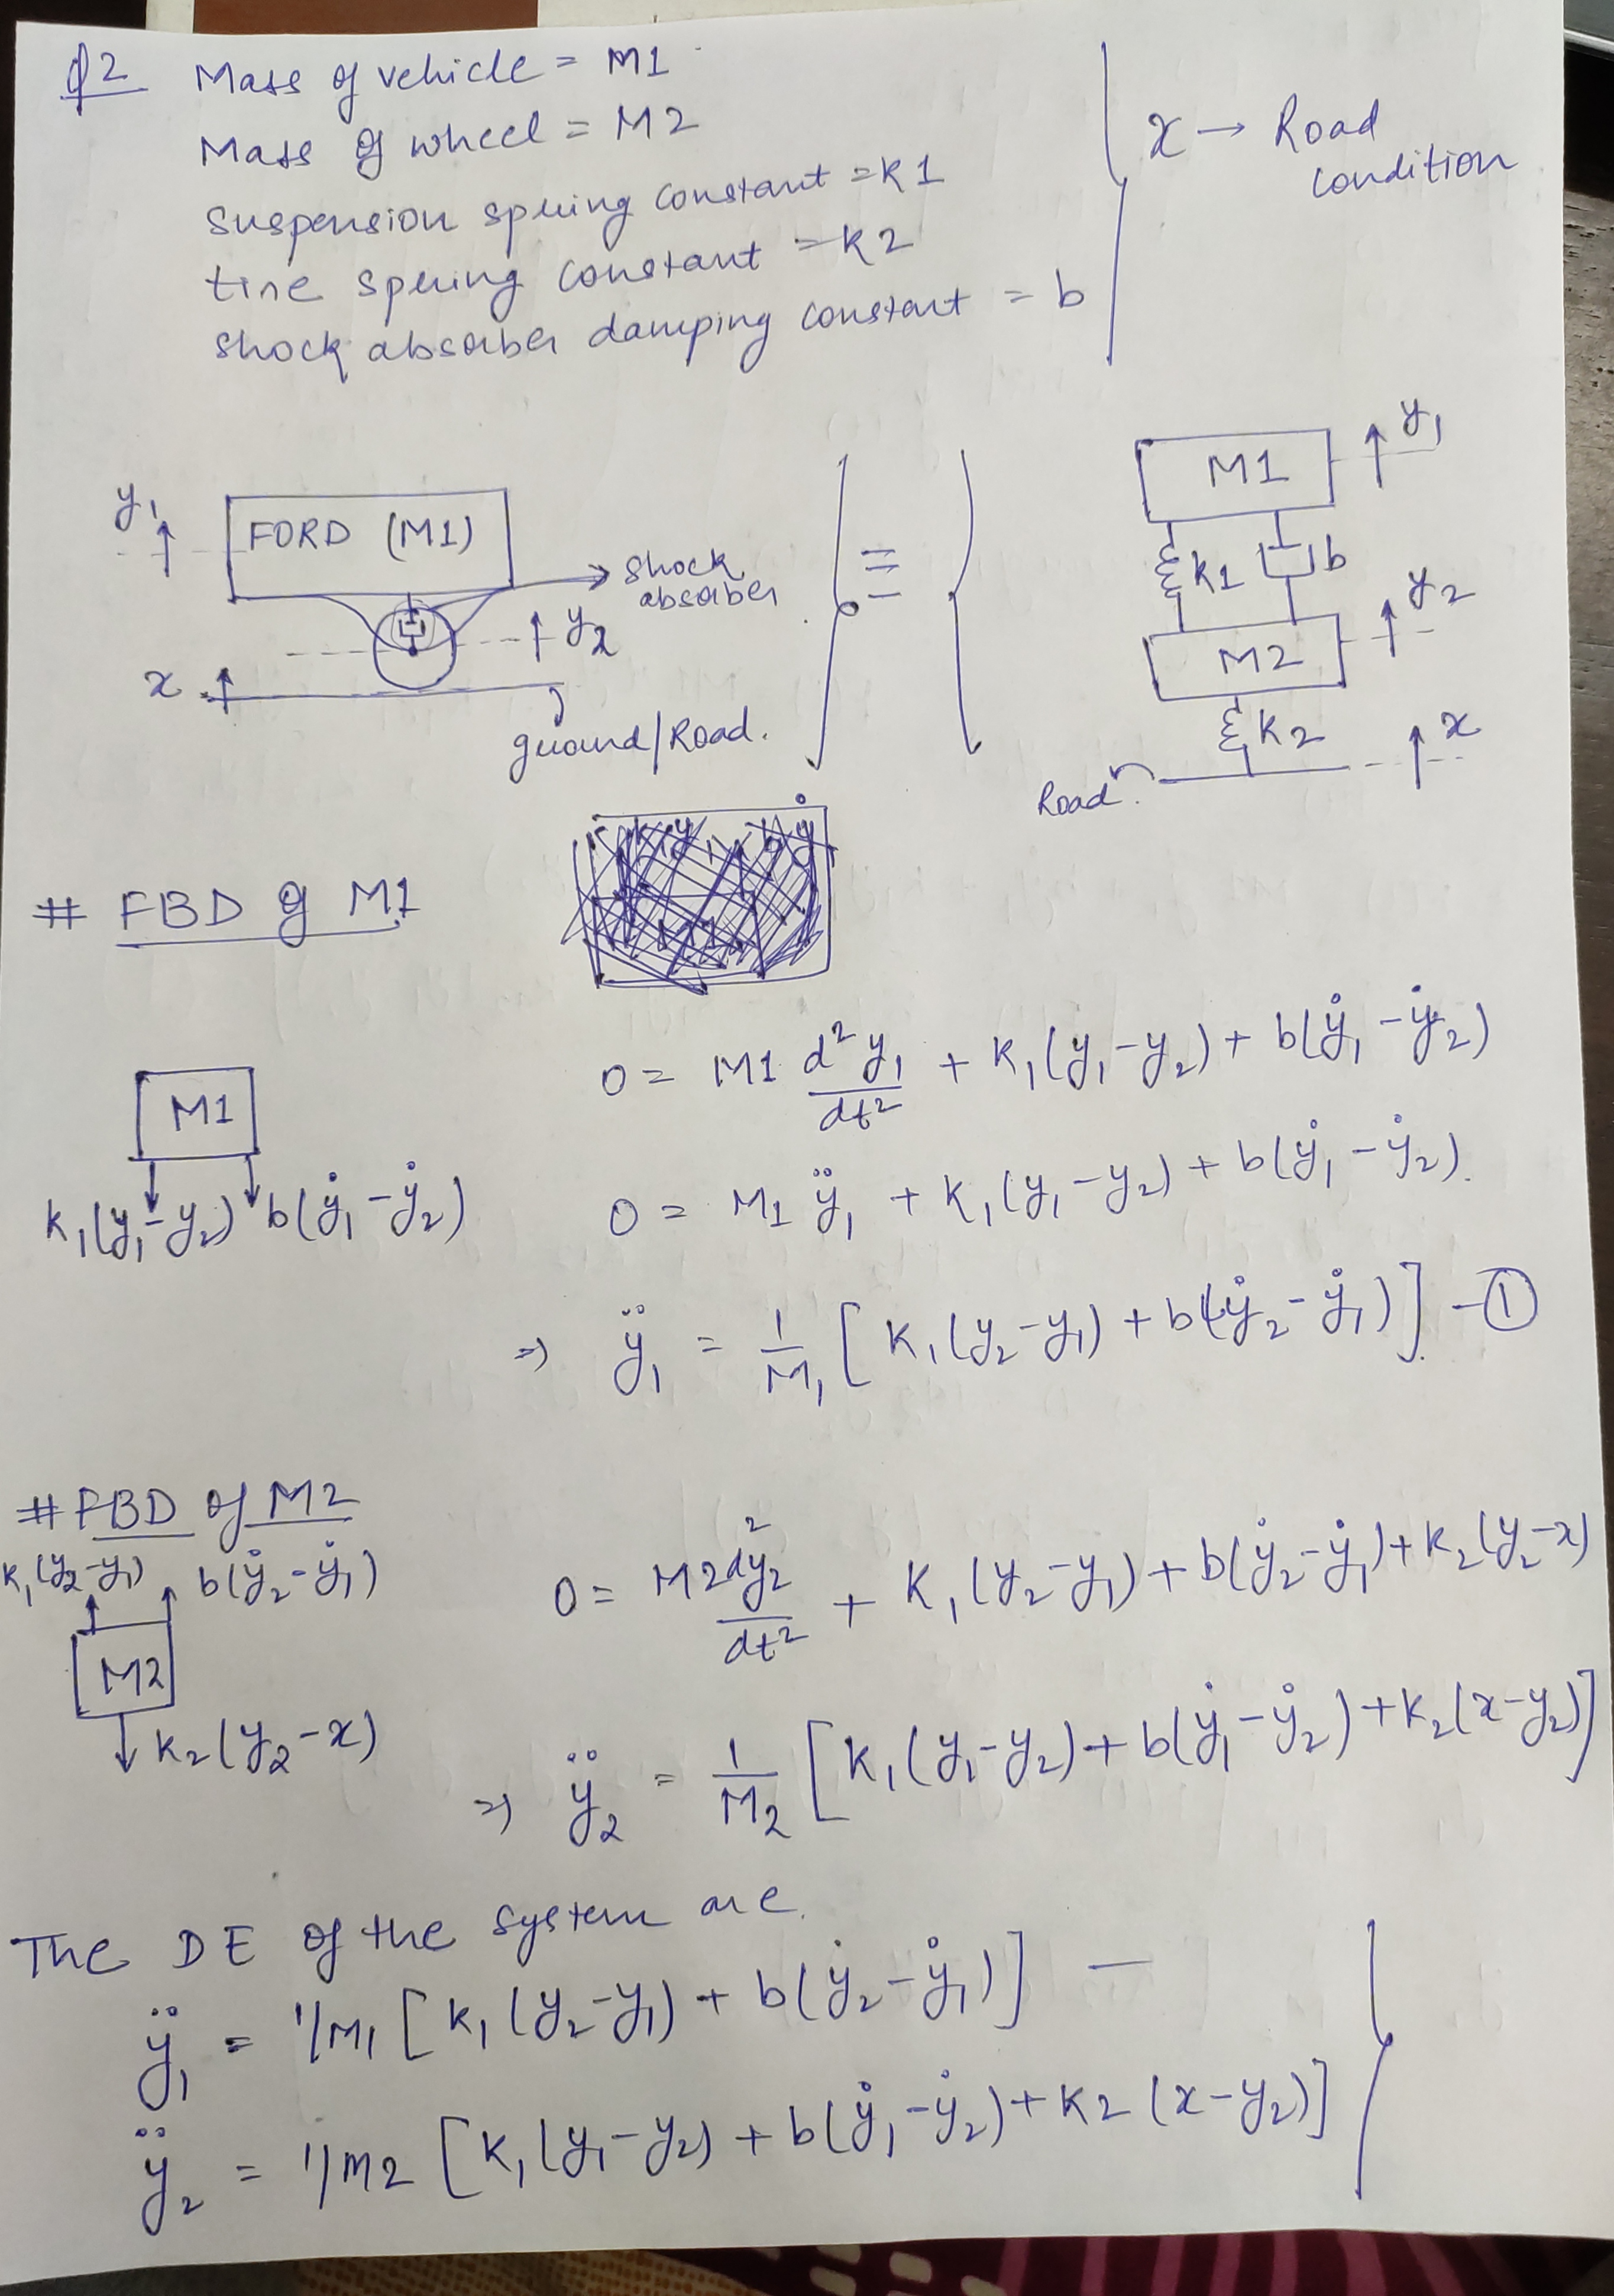 Q2 Mass of vehicle = M1
Mass of wheel = M2
suspension spring constant = K1
tire spring constant = K2
shock absorber damping constant = b
x → Road
condition
y₁
FORD (M1)
shock
absorber
y₂
x
ground/Road.
=
M1
y₁
K1
b
y₂
M2
K2
x
Road.
# FBD of M1
M1
K₁(y₁-y₂) b(ẏ₁-ẏ₂)
0 = M1 d²y₁/dt² + K₁(y₁-y₂) + b(ẏ₁-ẏ₂)
0 = M1 ÿ₁ + K₁(y₁-y₂) + b(ẏ₁-ẏ₂).
⇒ ÿ₁ = 1/M₁ [K₁(y₂-y₁) + b(ẏ₂-ẏ₁)] -①
# FBD of M2
K₁(y₂-y₁) b(ẏ₂-ẏ₁)
M2
K₂(y₂-x)
0 = M2 d²y₂/dt² + K₁(y₂-y₁) + b(ẏ₂-ẏ₁) + K₂(y₂-x)
⇒ ÿ₂ = 1/M₂ [K₁(y₁-y₂) + b(ẏ₁-ẏ₂) + K₂(x-y₂)]
The DE of the system are.
ÿ₁ = 1/M₁ [K₁(y₂-y₁) + b(ẏ₂-ẏ₁)] —
ÿ₂ = 1/M2 [K₁(y₁-y₂) + b(ẏ₁-ẏ₂) + K2(x-y₂)]